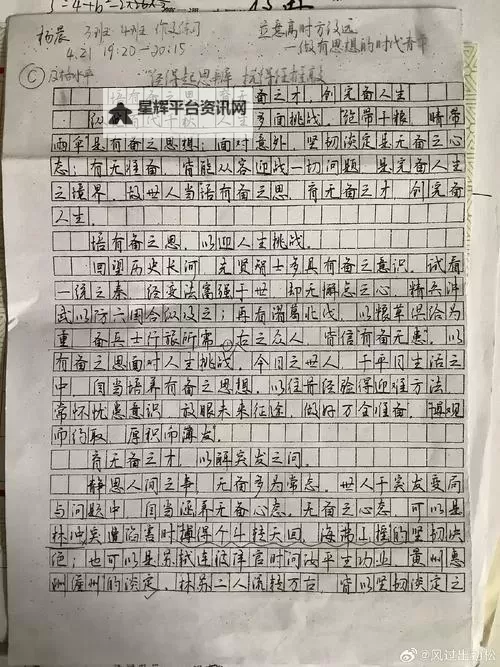 杨晨 3班 4班 作文练习
立意高时方致远
4.21 19:20—20:15
—做有思想的时代青年
C
经得起思辨
培有备之思 育无备之才 创完备人生
星辉平台资讯网
面挑战。绝带干粮 晴带
雨伞是有备之思想；面对意外，坚韧淡定是无备之心
态；有无准备，皆能从容迎战一切问题 是完备人生
之境界。故世人当培有备之思 育无备之才 创完备
人生。
培有备之思，以迎人生挑战。
回望历史长河 先贤硕士多具有备之意识。试看
一统之秦，经变法富强于世 却无懈怠之心 精兵
武以防六国合纵攻之；再有 北伐，以粮草供给为
重 备兵士行旅所需。在之众人 皆信有备无患。以
有备之思面对人生挑战，今日之世人 于平日生活之
中 固当培养有备之思想，以往昔经验得迎难方法
常怀忧患意识 放眼未来征途，做好万全准备，“博观
而约取 厚积而薄发”
育无备之才，以解突发之问。
静思人间之事 无备多为常态。世人于突发变局
与问题中 固当涵养无备心态。无备之心态，可以是
林冲突遭陷害时搏得个斗转天回，海带山 的坚韧决
绝；也可以是苏轼连被贬官时问汝平生功业，黄州惠
州儋州”的淡定，林苏二人流转万古，皆以坚韧淡定之
@风过生劲松